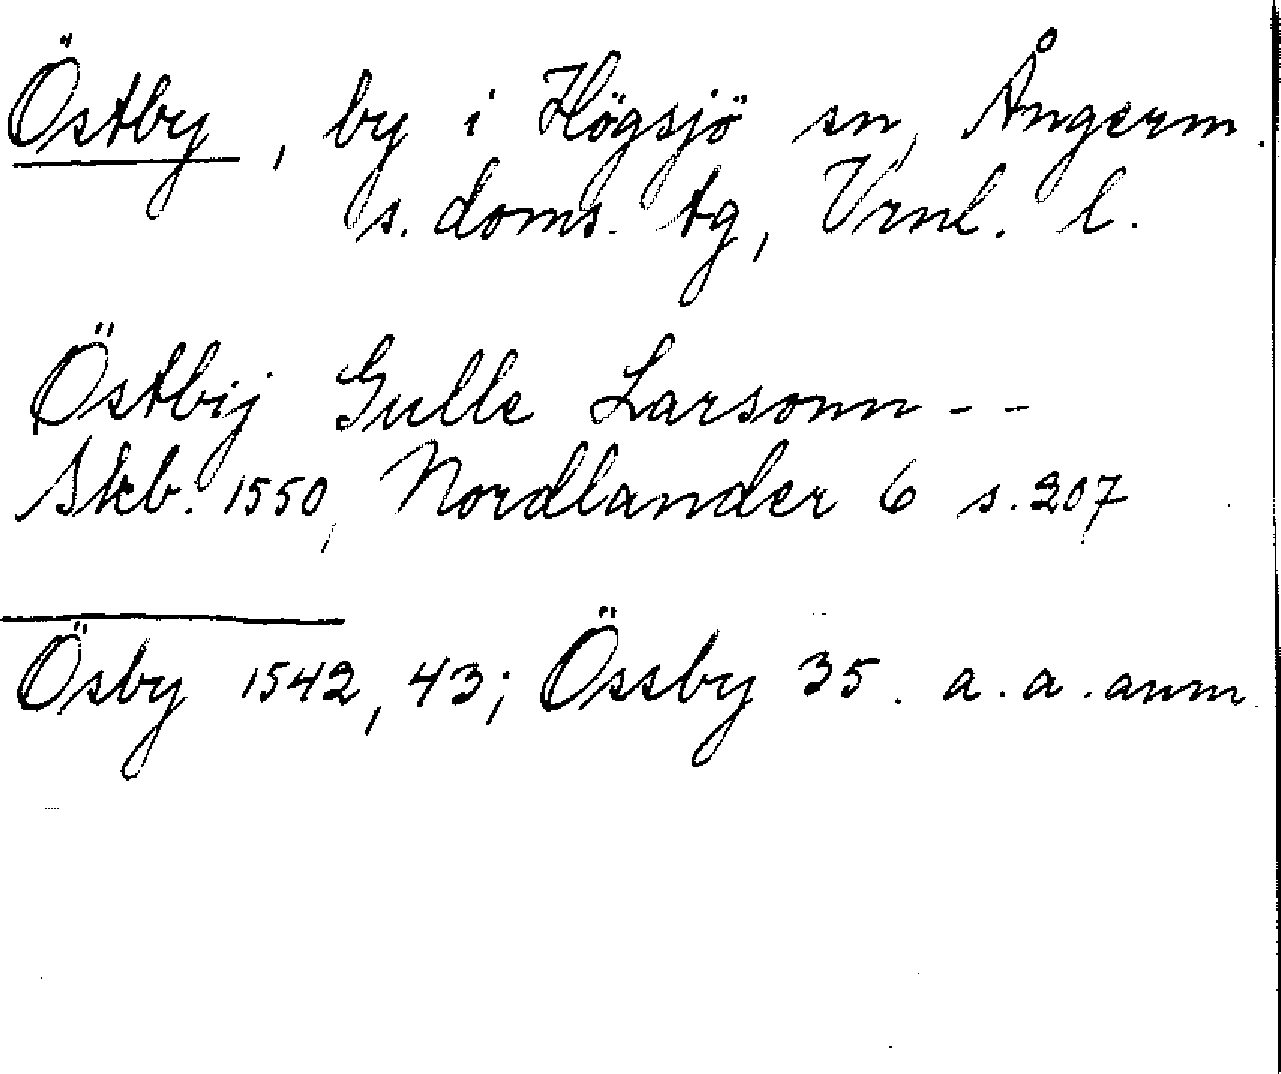 Östby, by i Högsjö sn, Ångerm.
s. doms. tg, Vrnl. l.
Östbij Gulle Larsonn - -
Skb. 1550, Nordlander 6 s. 207
Ösby 1542, 43; Össby 35. a. a. anm.